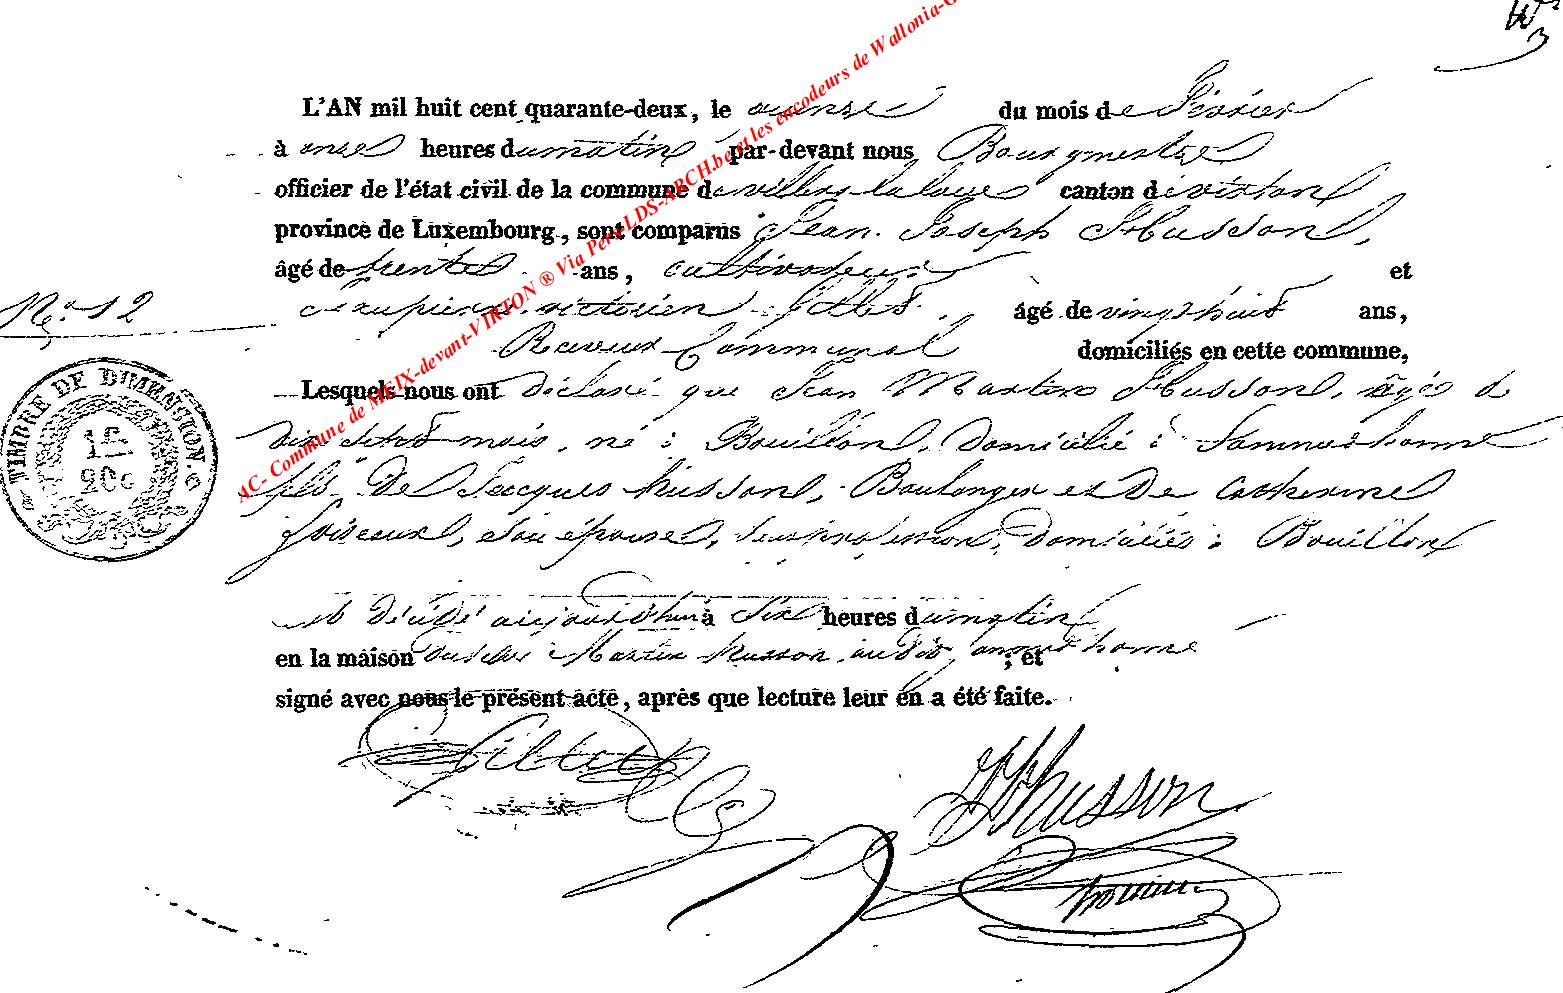 L'AN mil huit cent quarante-deux, le onze du mois de Février
à onze heures du matin par-devant nous Bourgmestre
officier de l'état civil de la commune de villers la loue canton de virton
province de Luxembourg, sont comparus Jean Joseph Husson,
âgé de trente ans, cultivateur et
victorien âgé de vingt huit ans,
Receveur Communal domiciliés en cette commune,
N° 12
Lesquels nous ont déclaré que Jean Martin Husson, âgé de
dix sept mois, né à Bouillon, domicilié à Sommethonne
fils de Jacques Husson, Boulanger et De Catherine
son épouse, profession, domiciliés à Bouillon
est décédé aujourd'hui à six heures du matin
en la maison Martin Husson audit Sommethonne ; et
signé avec nous le présent acte, après que lecture leur en a été faite.
JJ Husson
TIMBRE DE DIMENSION.
1 f.
20 c
AC- Commune de MEIX-devant-VIRTON ® Via Pers-LDS-ARCH.be et les encodeurs de Wallonia-G